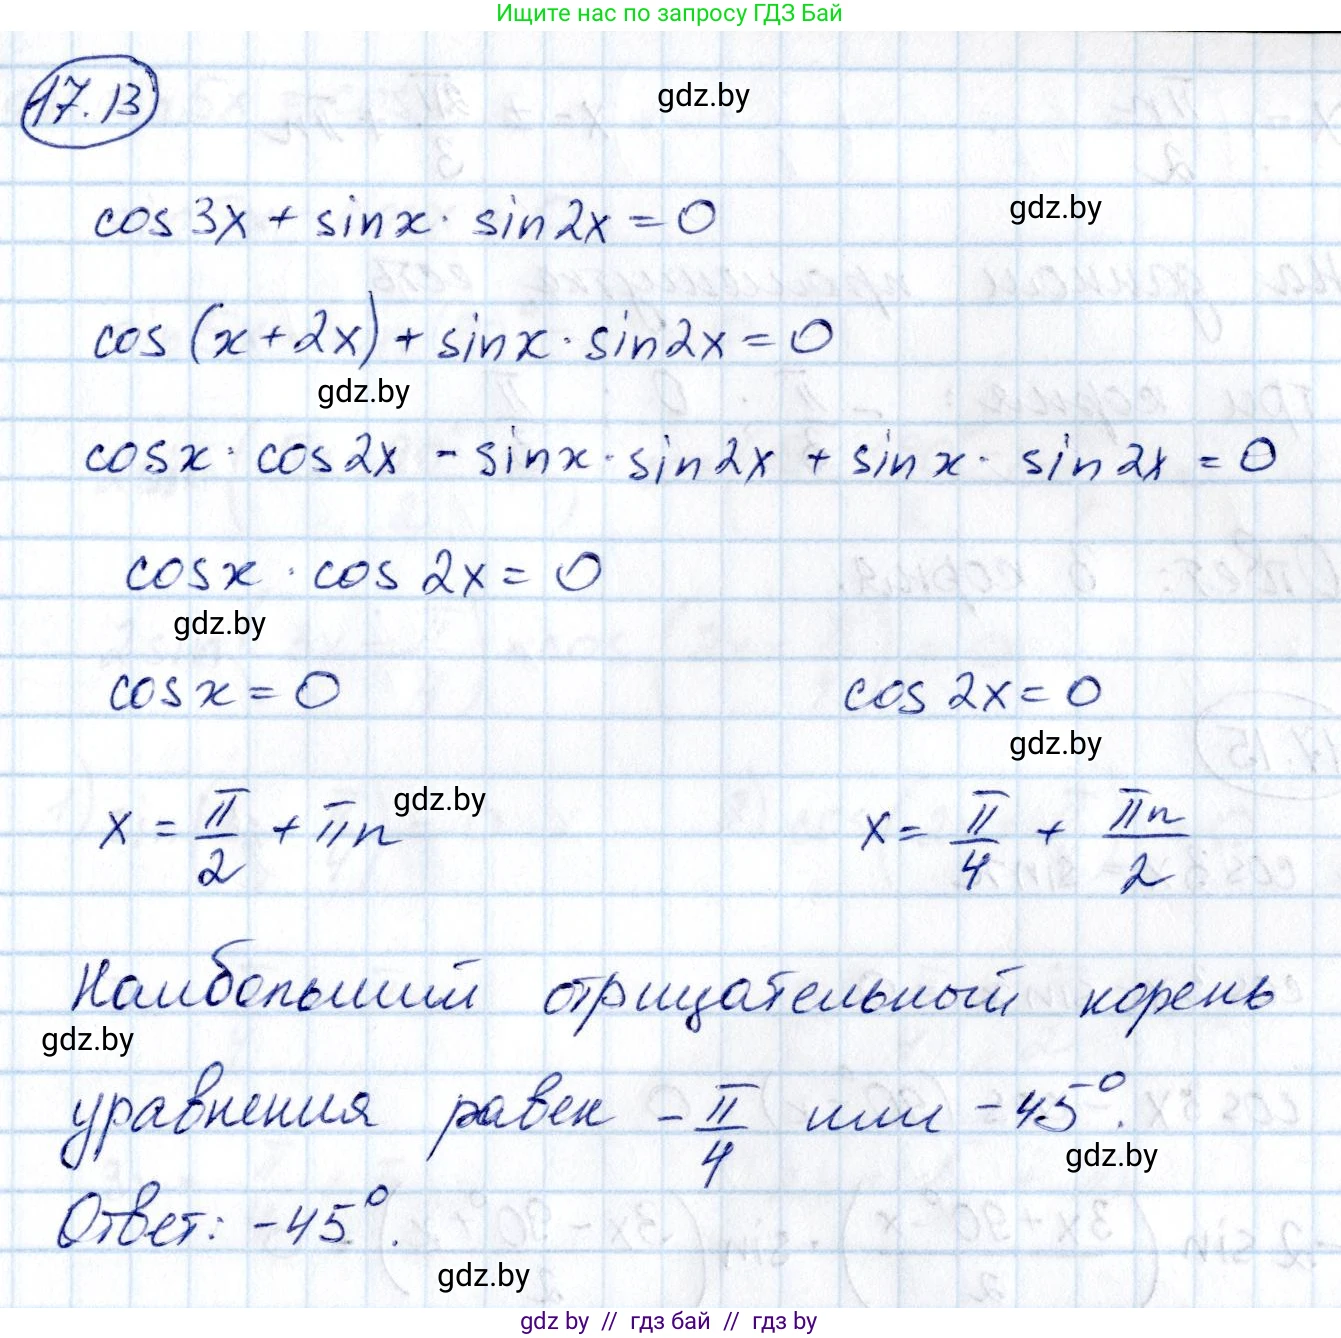 Ищите нас по запросу ГДЗ Бай
17.13
gdz.by
cos 3x + sin x · sin 2x = 0
gdz.by
cos (x + 2x) + sin x · sin 2x = 0
gdz.by
cos x · cos 2x - sin x · sin 2x + sin x · sin 2x = 0
cos x · cos 2x = 0
gdz.by
cos x = 0 cos 2x = 0
gdz.by
gdz.by
x = π/2 + πn x = π/4 + πn/2
Наибольший отрицательный корень
gdz.by
уравнения равен - π/4 или -45°.
gdz.by
Ответ: -45°.
gdz.by
gdz by // гдз бай // гдз by